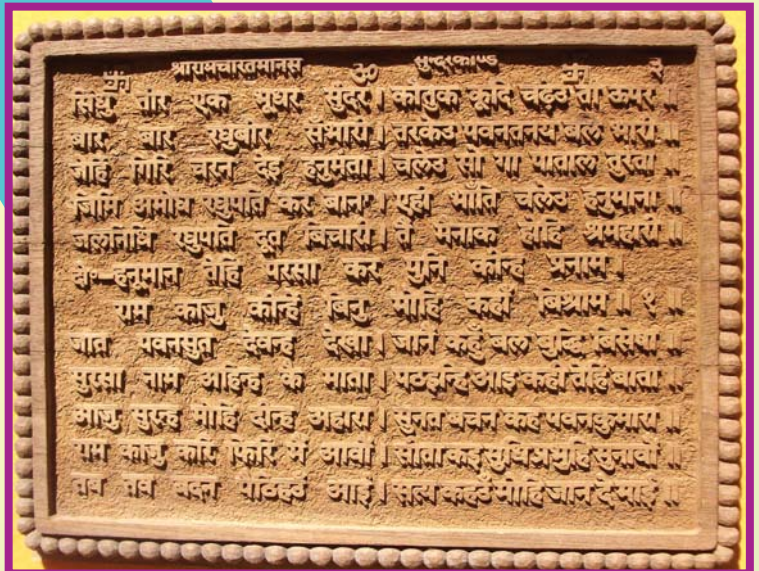 श्रीरामचरितमानस ॐ सुन्दरकाण्ड २
सिंधु तीर एक भूधर सुंदर। कौतुक कूदि चढ़ेउ ता ऊपर॥
बार बार रघुबीर सँभारी। तरकेउ पवनतनय बल भारी॥
जेहिं गिरि चरन देइ हनुमंता। चलेउ सो गा पाताल तुरंता॥
जिमि अमोघ रघुपति कर बाना। एही भाँति चलेउ हनुमाना॥
जलनिधि रघुपति दूत बिचारी। तैं मैनाक होहि श्रमहारी॥
दो॰—हनूमान तेहि परसा कर पुनि कीन्ह प्रनाम।
राम काजु कीन्हें बिनु मोहि कहाँ बिश्राम॥ १॥
जात पवनसुत देवन्ह देखा। जानैं कहुँ बल बुद्धि बिसेषा॥
सुरसा नाम अहिन्ह कै माता। पठइन्हि आइ कही तेहिं बाता॥
आजु सुरन्ह मोहि दीन्ह अहारा। सुनत बचन कह पवनकुमारा॥
राम काजु करि फिरि मैं आवौं। सीता कइ सुधि प्रभुहि सुनावौं॥
तब तव बदन पैठिहउँ आई। सत्य कहउँ मोहि जान दे माई॥